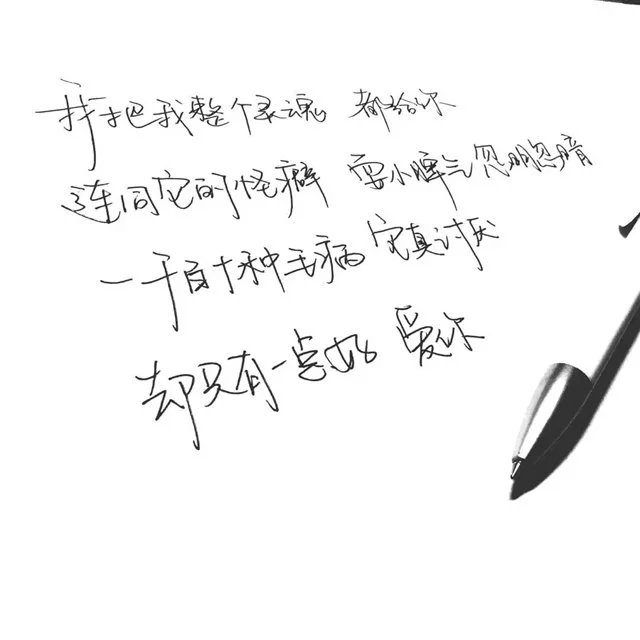 我把我整个灵魂 都给你
连同它的怪癖 耍小脾气 忽明忽暗
一千百十种毛病 它真讨厌
却只有一点好 爱你